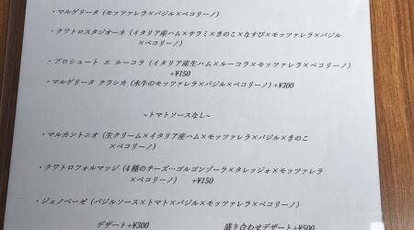 ・マルゲリータ (モッツァレラ×バジル×ペコリーノ)
・クワトロスタジオーネ (イタリア産ハム×サラミ×きのこ×なすび×モッツァレラ×バジル
×ペコリーノ)
・プロシュート エ ルーコラ (イタリア産生ハム×ルーコラ×モッツァレラ×ペコリーノ)
+¥150
・マルゲリータ クラシカ (水牛のモッツァレラ×バジル×ペコリーノ) +¥300
~トマトソースなし~
・マルカントニオ (生クリーム×イタリア産ハム×モッツァレラ×バジル×きのこ
×ペコリーノ)
・クワトロフォルマッジ (4種のチーズ…ゴルゴンゾーラ×タレッジョ×モッツァレラ
×ペコリーノ) +¥150
・ジェノベーゼ (バジルソース×トマト×バジル×モッツァレラ×ペコリーノ)
デザート+¥300 盛り合わせデザート+¥500